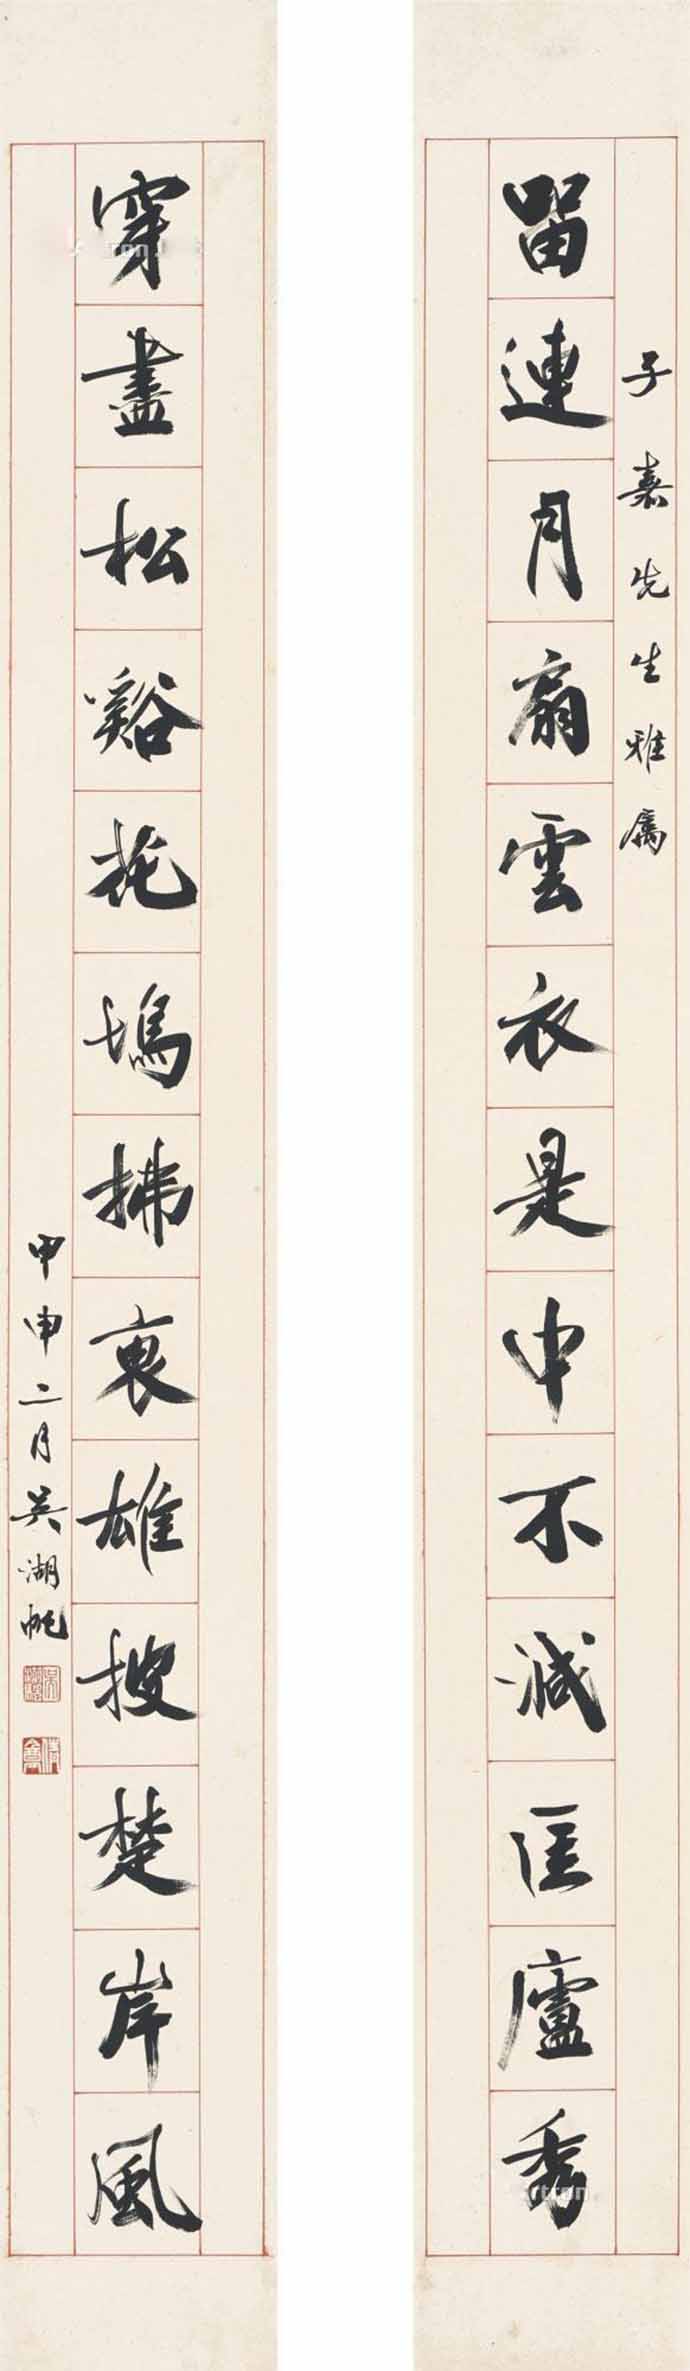 子嘉先生雅属
留連月扇雲衣是中不減匡廬秀
穿盡松谿花塢拂裏雄披楚岸風
甲申二月吳湖帆